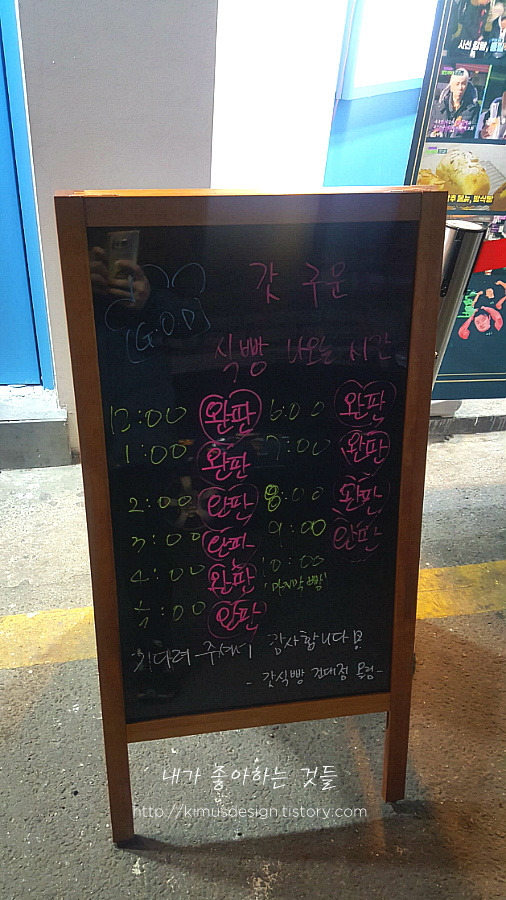 [G.O.D]
갓 구운
식빵 나오는 시간
12:00 완판 6:00 완판
1:00 완판 7:00 완판
2:00 완판 8:00 완판
3:00 완판 9:00 완판
4:00 완판 10:00
"마지막빵"
5:00 완판
기다려 주셔서 감사합니다
- 갓식빵 건대점 올림-
내가 좋아하는 것들
http://kimusdesign.tistory.com